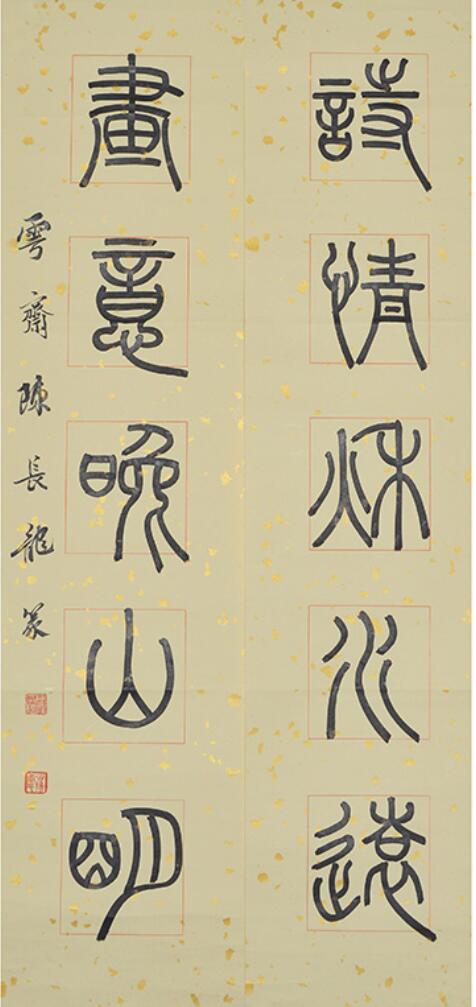 詩情秋水遠
畫意晚山明
雩齋陳長龍篆